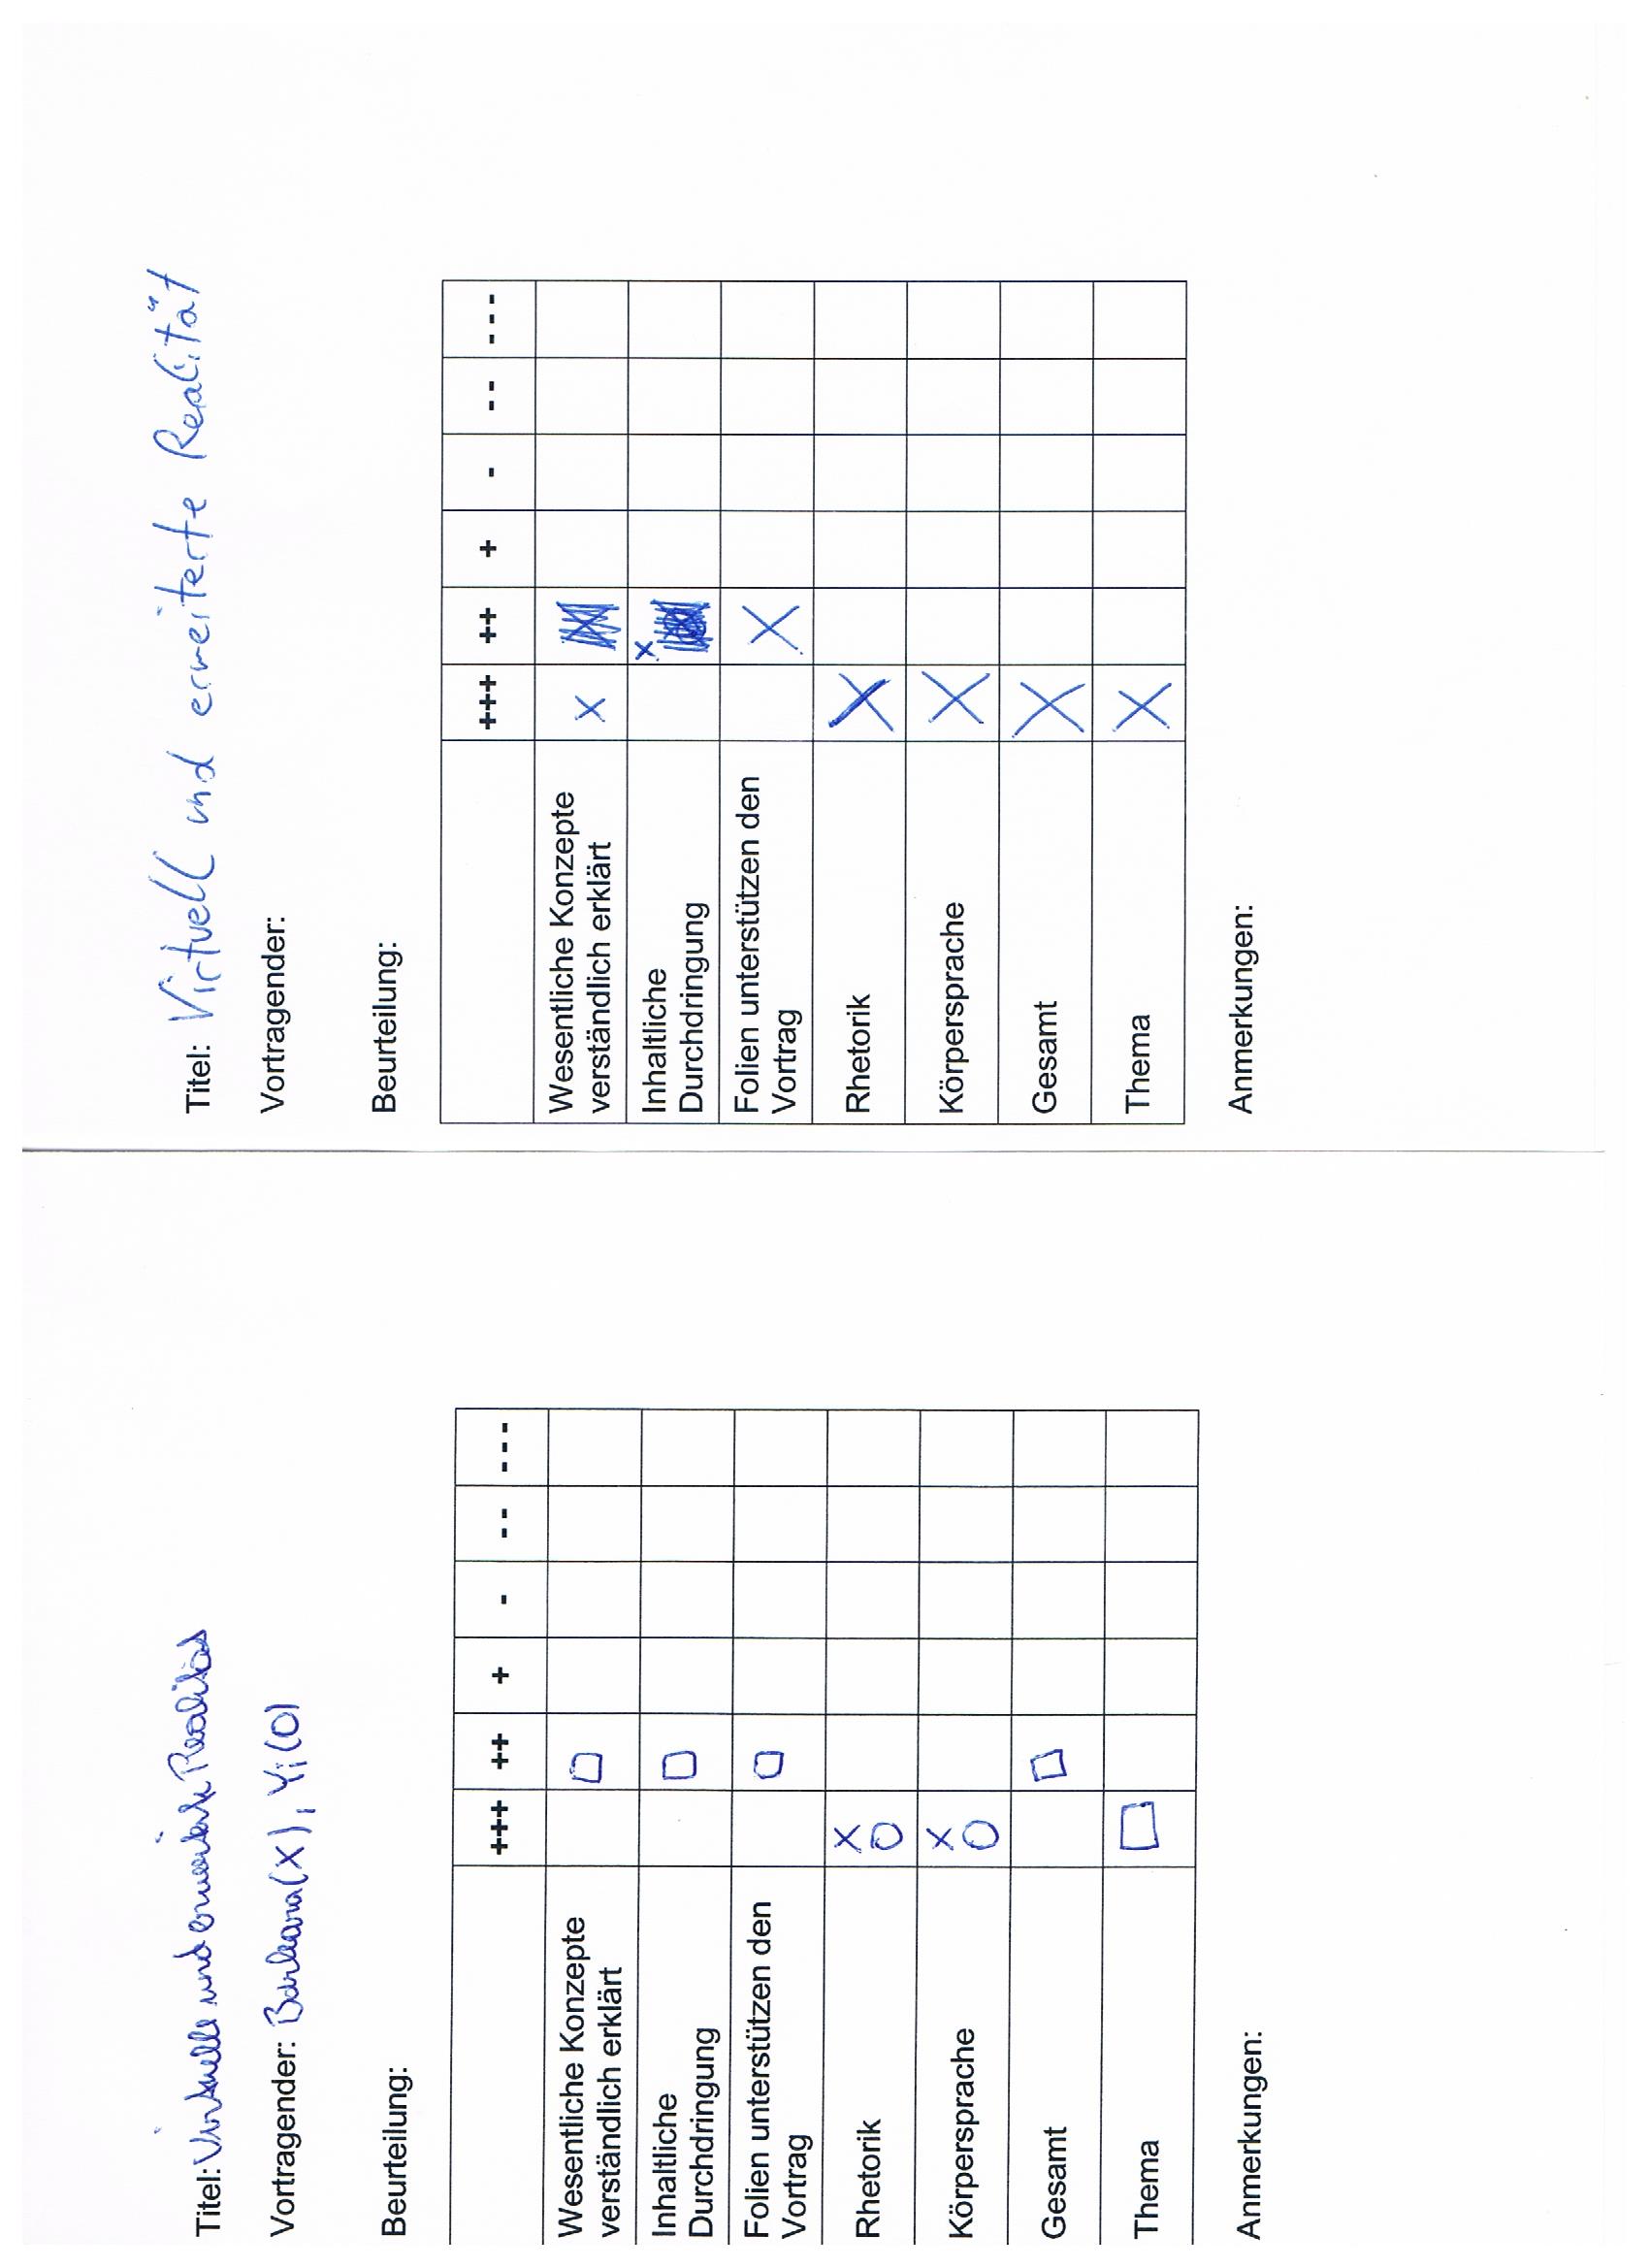 Titel: Virtuelle und erweiterte Realität
Vortragender: Barbara (X), Yi (O)
Beurteilung:
+++ ++ + - -- ---
Wesentliche Konzepte
verständlich erklärt
Inhaltliche
Durchdringung
Folien unterstützen den
Vortrag
Rhetorik X O
Körpersprache X O
Gesamt
Thema
Anmerkungen:
Titel: Virtuell und erweiterte Realität
Vortragender:
Beurteilung:
+++ ++ + - -- ---
Wesentliche Konzepte X
verständlich erklärt
Inhaltliche X
Durchdringung
Folien unterstützen den X
Vortrag
Rhetorik X
Körpersprache X
Gesamt X
Thema X
Anmerkungen: